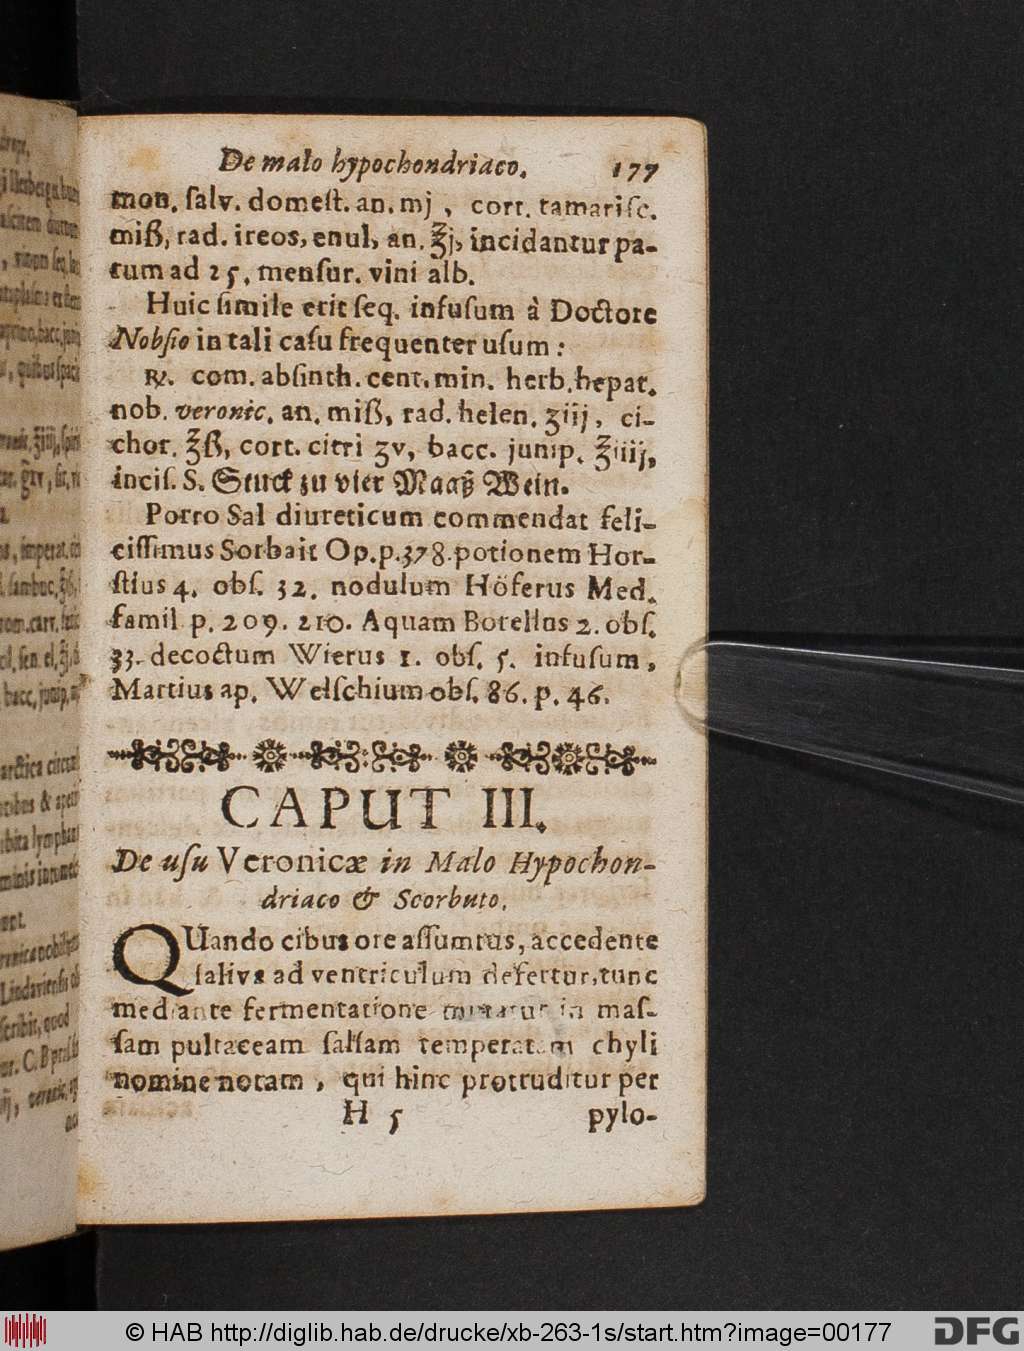 De malo hypochondriaco. 177
mon. ſalv. domeſt. an. mj, cort. tamariſc.
miß, rad. ireos, enul, an. ℥j, incidantur pa-
rum ad 25. menſur. vini alb.
Huic ſimile erit ſeq. infuſum à Doctore
Nobſio in tali caſu frequenter uſum:
℞. com. abſinth. cent. min. herb. hepat.
nob. veronic. an. miß, rad. helen. ʒiij, ci-
chor. ℥ß, cort. citri ʒv, bacc. junip. ℥iiij,
inciſ. S. Stuck zu vier Maaß Wein.
Porro Sal diureticum commendat feli-
ciſſimus Sorbait Op. p. 378. potionem Hor-
ſtius 4. obſ. 32. nodulum Höferus Med.
famil p. 209. 210. Aquam Borellus 2. obſ.
33. decoctum Wierus 1. obſ. 5. infuſum,
Martius ap. Welſchium obſ. 86. p. 46.
CAPUT III.
De uſu Veronicæ in Malo Hypochon-
driaco & Scorbuto.
QUando cibus ore aſſumtus, accedente
ſaliva ad ventriculum defertur, tunc
mediante fermentatione mutatur in maſ-
ſam pultaceam ſalſam temperatam chyli
nomine notam, qui hinc protruditur per
H 5 pylo-
© HAB http://diglib.hab.de/drucke/xb-263-1s/start.htm?image=00177 DFG